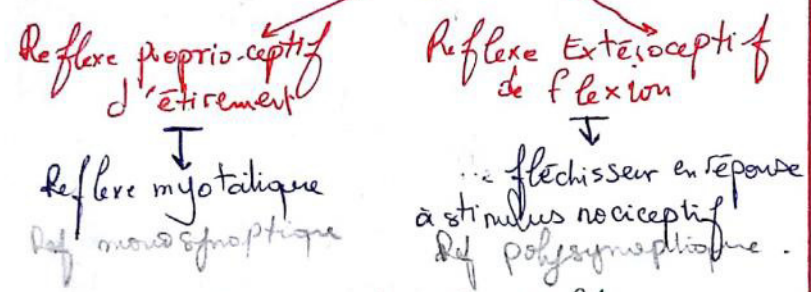 Reflexe proprio-ceptif
d'étirement
Reflexe myotatique
Ref monosynoptique
Reflexe Extéroceptif
de flexion
fléchisseur en réponse
à stimulus nociceptif
Ref polysynoptique.